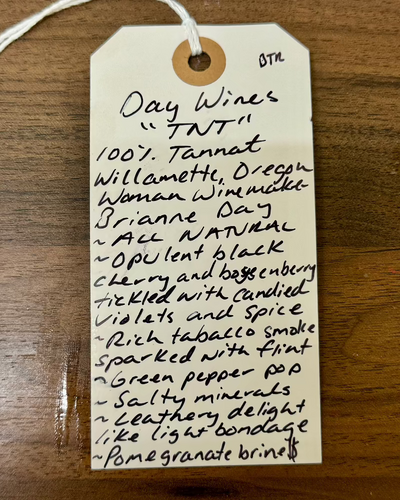 BTR
Day Wines
"TNT"
100% Tannat
Willamette, Oregon
Woman Winemaker
Brianne Day
~ ALL NATURAL
~ Opulent black
cherry and boysenberry
tickled with candied
violets and spice
~ Rich taballo smoke
sparked with flint
~ Green pepper pop
~ Salty minerals
~ Leathery delight
like light bondage
~ Pomegranate brine